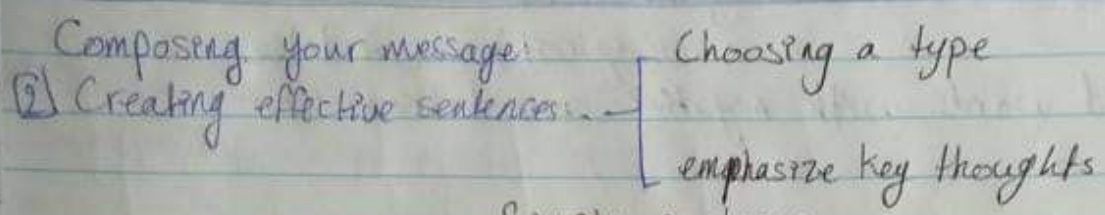 Composing your message:
[2] Creating effective sentences..
Choosing a type
emphasize key thoughts